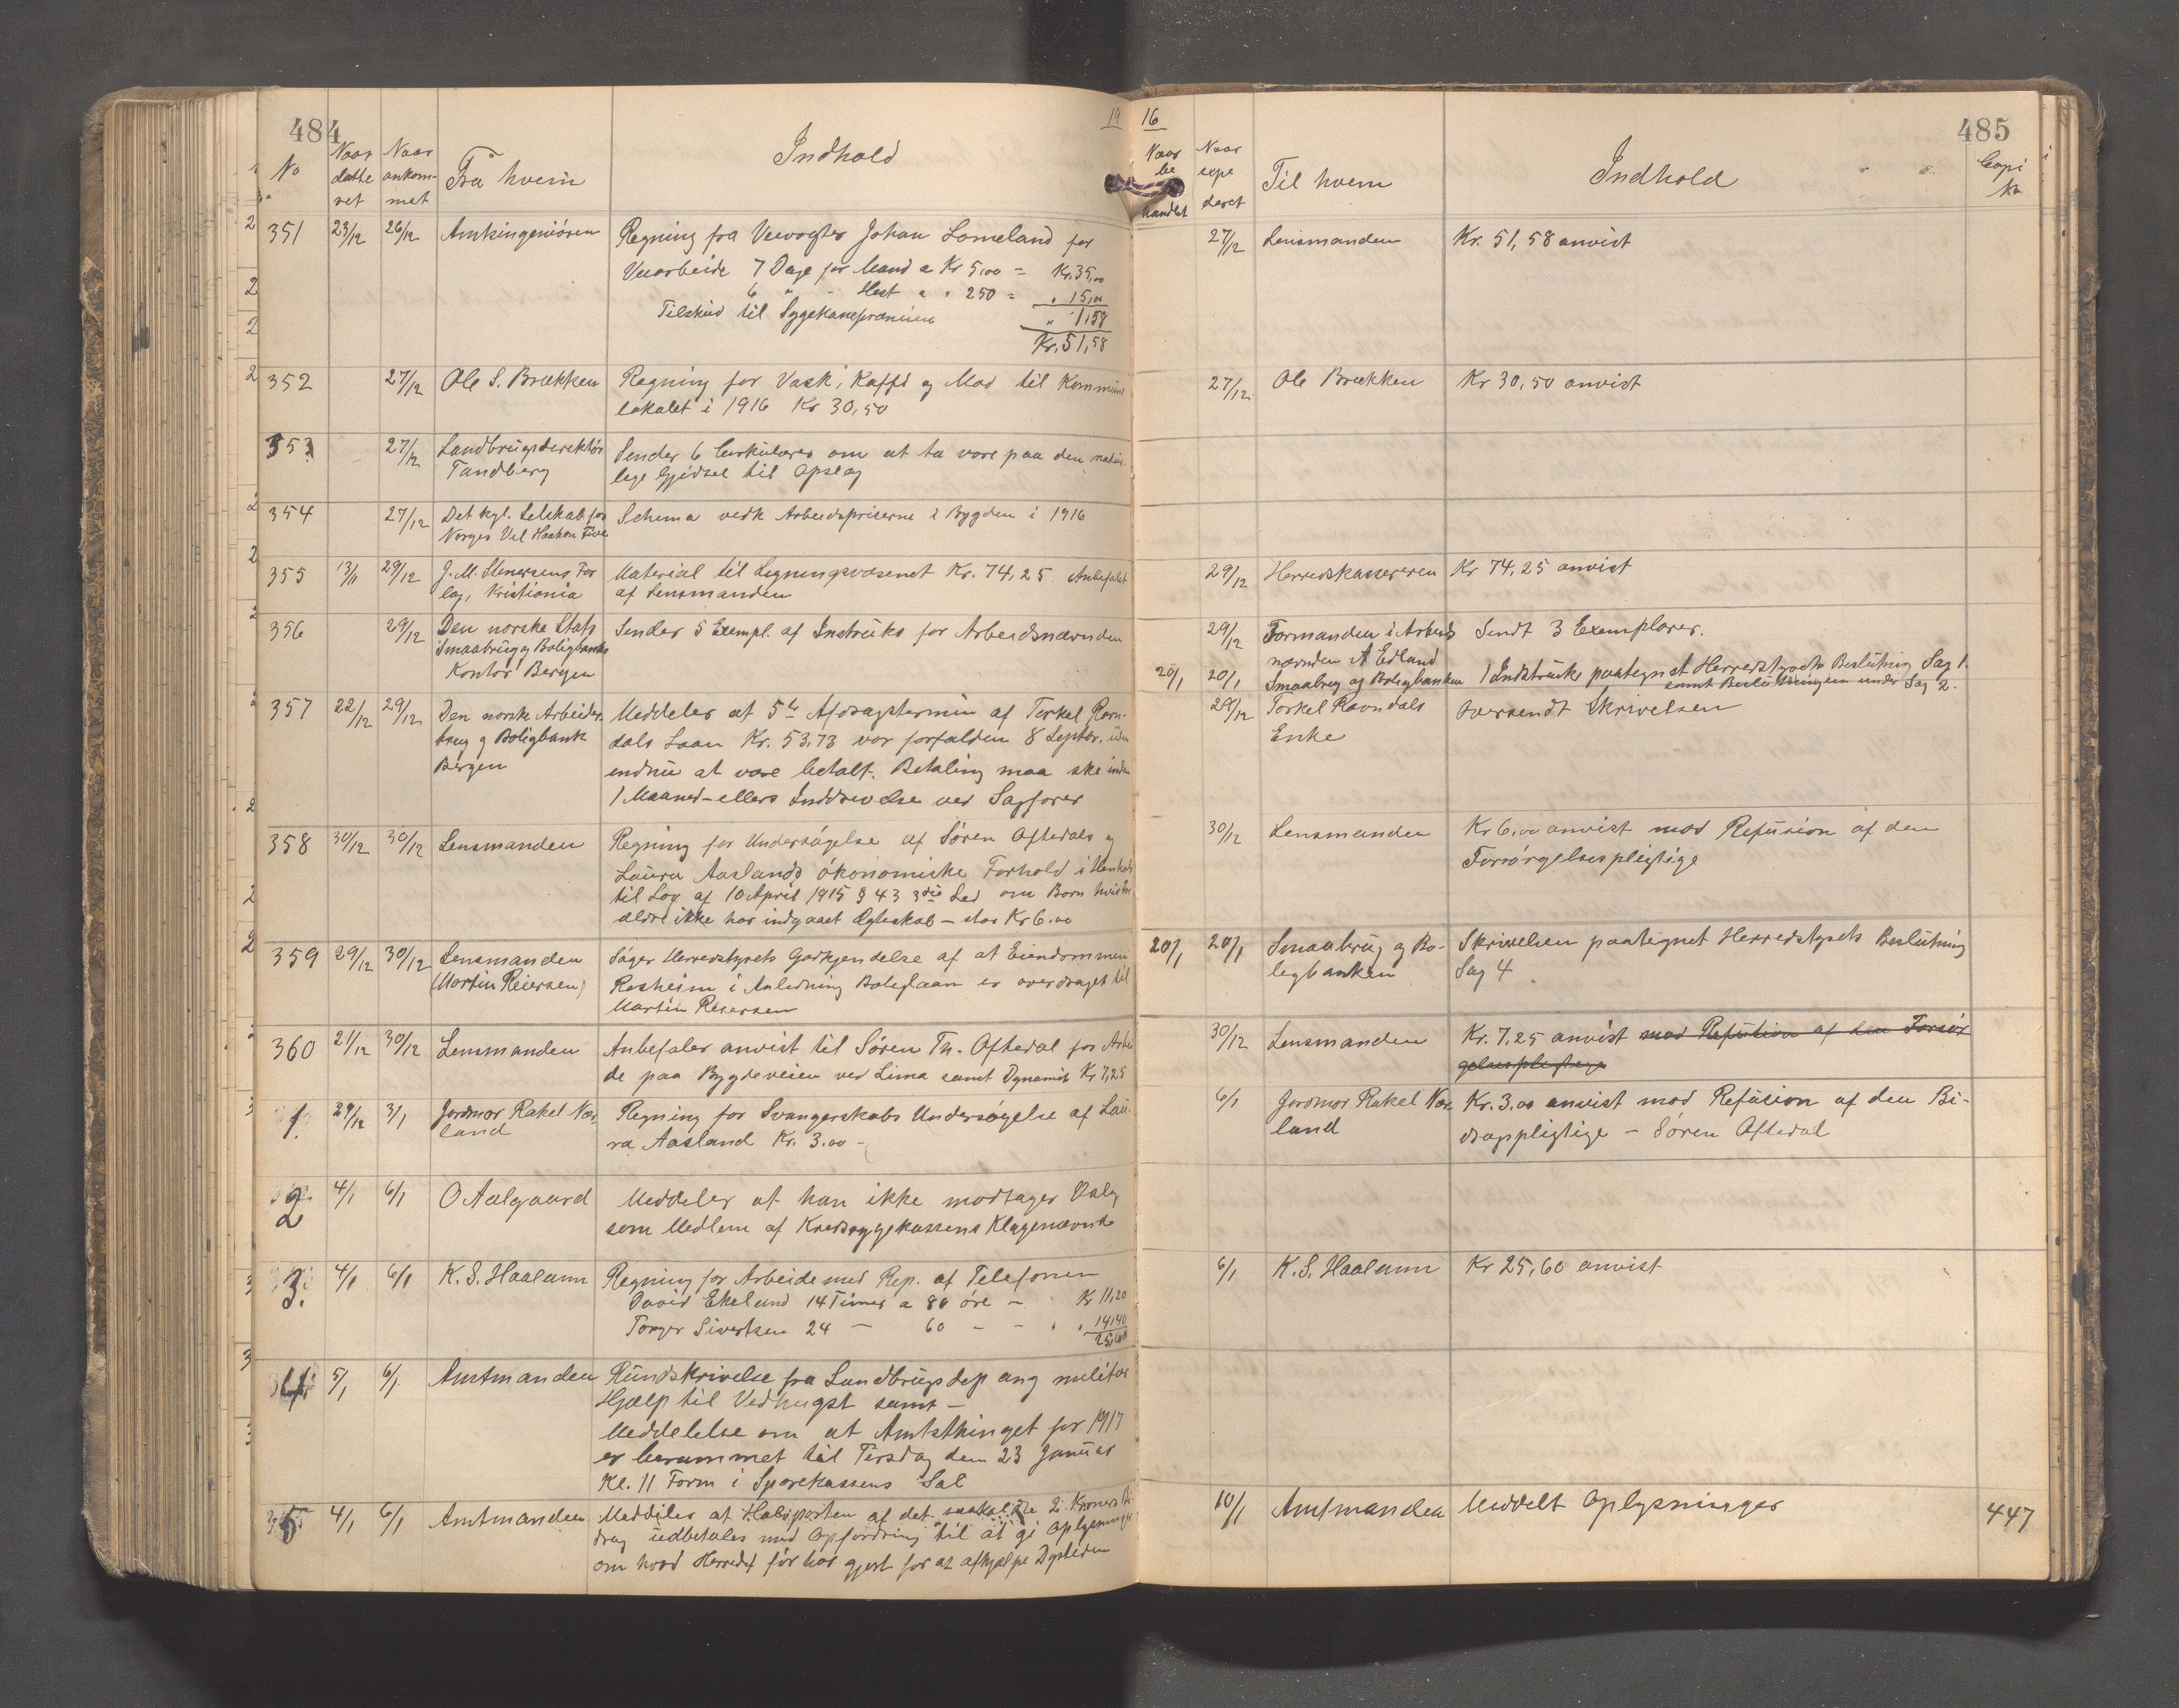 484
19
No
Naar
datte
ret
Naar
ankom-
met
Fra hvem
Indhold
351 23/12 26/12 Amtsingeniören Regning fra Veivogter Johan Lomeland for
Veiarbeide 7 Dage for Mand a Kr 5,00 = Kr. 35,00
6 " - Hest a " 250 = " 15,00
Tilskud til Sygekassepræmien " 1,58
Kr. 51,58
352 27/12 Ole S. Brækken Regning for Vask, Kaffe og Mad til Kommune
lokalet i 1916 Kr 30,50
353 27/12 Landbrugsdirektör Sender 6 Cirkulærer om at ta vare paa den natur-
Tandberg lige Gjödsel til Opslag
354 27/12 Det kgl. Selskab for Schema vedk Arbeidspriserne i Bygden i 1916
Norges Vel Haakon Five
355 13/11 29/12 J. M. Stenersens For Material til Ligningsvæsenet Kr. 74,25 Anbefalet
lag, Kristiania af Lensmanden
356 29/12 Den norske Stats Sender 5 Exempl. af Instruks for Arbeidsnævnden
Smaabrug og Boligbanks
Kontor Bergen
357 22/12 29/12 Den norske Arbeider- Meddeler at 5te Afdragstermin af Torkel Ravn-
brug og Boligbank dals Laan Kr. 53,73 var forfalden 8 Septbr. uden
Bergen endnu at være betalt. Betaling maa ske inden
1 Maaned - ellers Inddrivelse ved Sagförer
358 30/12 30/12 Lensmanden Regning for Undersögelse af Sören Oftedals og
Laura Aaslands ökonomiske Forhold i Henhold
til Lov af 10 April 1915 § 43 3die Led om Börn hvis For
ældre ikke har indgaaet Ægteskab - stor Kr 6.00
359 29/12 30/12 Lensmanden Söger Herredstyrets Godkjendelse af at Eiendommen
(Martin Reiersen) Rosheim i Anledning Boliglaan er overdraget til
Martin Reiersen
360 21/12 30/12 Lensmanden Anbefaler anvist til Sören Th. Oftedal for Arbei
de paa Bygdeveien ved Lima samt Dynamit Kr 7,25
1. 29/12 3/1 Jordmor Rakel Nor- Regning for Svangerskabs Undersögelse af Lau-
land ra Aasland Kr. 3.00 -
2 4/1 6/1 O Aalgaard Meddeler at han ikke modtager Valg
som Medlem af Kredssygekassens Klagenævnd
3. 4/1 6/1 K. S. Haaland Regning for Arbeide med Rep. af Telefonen
David Ekeland 14 Timer a 80 öre - Kr 11,20
Torger Sivertsen 24 - 60 - - " " 14,40
25,60
4 5/1 6/1 Amtmanden Rundskrivelse fra Landbrugsdep ang militær
Hjælp til Vedhugst samt -
Meddelelse om at Amtsthinget for 1917
er berammet til Tirsdag den 23 Januar
Kl. 11 Form i Sparekassens Sal
5 4/1 6/1 Amtmanden Meddeler at Halvparten af det saakaldte 2 Kroners Bi
drag udbetales med Opfordring til at gi Oplysninger
om hvad Herredet för har gjort for at afhjælpe Dyrtiden
16
485
Naar
be
handlet
Naar
expe
deret
Til hvem
Indhold
Copi
No
27/12 Lensmanden Kr. 51,58 anvist
27/12 Ole Brækken Kr 30,50 anvist
29/12 Herredskassereren Kr 74,25 anvist
29/12 Formanden i Arbeids Sendt 3 Exemplarer.
nævnden A Edland
20/1 20/1 Smaabrug og Boligbanken 1 Instruks paategnet Herredstyrets Beslutning Sag 1.
samt Beslutningen under Sag 2.
29/12 Torkel Ravndals Oversendt Skrivelsen
Enke
30/12 Lensmanden Kr 6.00 anvist mod Refusion af den
Forsörgelsespligtige
20/1 20/1 Smaabrug og Bo- Skrivelsen paategnet Herredstyrets Beslutning
ligbanken Sag 4
30/12 Lensmanden Kr. 7,25 anvist mod Refusion af den Forsör
gelsespligtige
6/1 Jordmor Rakel Nor- Kr. 3.00 anvist mod Refusion af den Bi-
land dragspligtige - Sören Oftedal
6/1 K. S. Haaland Kr 25,60 anvist
10/1 Amtmanden Meddelt Oplysninger 447